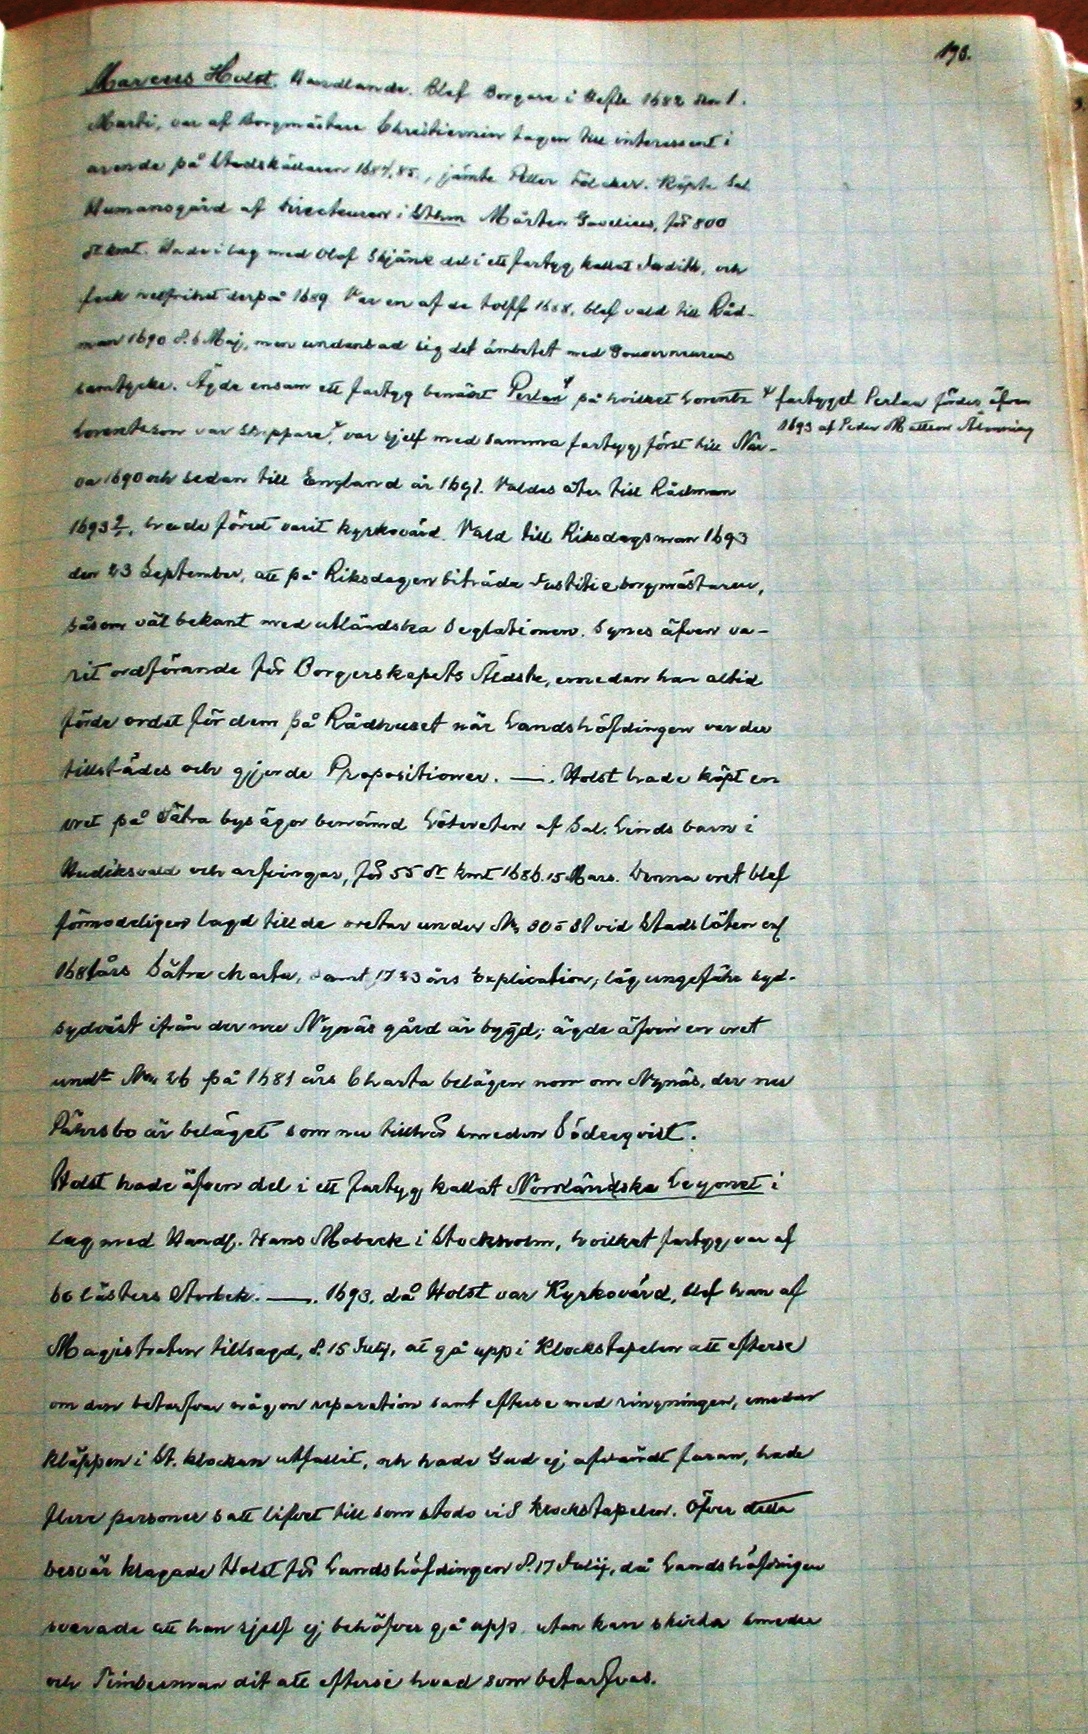 193.
Marcus Holst. Handlande. Blef Borgare i Gefle 1682 den 1.
Marti, var af Borgmästare Christiernin tagen till interessent i
arende på Stadskällaren 1684, 85, jämte Petter Fölcker. Köpte Sal
Humansgård af Directeuren i Sthm Mårten Gavelius, för 800
dr kmt. Hade i lag med Olof Skjänk del i ett fartyg kallat Judith, och
feck helfrihet derpå 1689. Var en af de tolff 1688, blef vald till Råd-
man 1690 d. 6 Maj, men undanbad sig det ämbetet med Gouverneurens
samtycke. Ägde ensam ett fartyg benämt Perlan på hvilket Lorentz
fartyget Perlan fördes äfven
1693 af Peder Mattson Älvwing
Lorentzson var Skeppare, var sjelf med samma fartyg först till Nar-
va 1690 och sedan till England år 1691. Valdes åter till Rådman
1693, hade förut varit kyrkovärd. Vald till Riksdagsman 1693
den 23 September, att på Riksdagen biträda Justitieborgmästaren,
såsom väl bekant med utländska Seglationen. Synes äfven va-
rit ordförande för Borgerskapets Äldste, emedan han altid
förde ordet för dem på Rådhuset när Landshöfdingen var der
tillstädes och gjorde Propositioner. —. Holst hade köpt en
vret på Sätra bys ägor benämd Lötvreten af Sal. Linds barn i
Hudiksvald och arfvingar, för 55 dr kmt 1686. 15 Mars. Denna vret blef
förmodeligen lagd till de vretar under No 80 o 81 vid Stadslöten enl
1681 års Sätra charta, samt 1723 års Explication, låg ungefähr syd-
sydväst ifrån der nu Nynäs gård är bygd; ägde äfven en vret
undr No 26 på 1681 års Charta belägen norr om Nynäs, der nu
Påhrsbo är beläget som nu tillhör smeden Söderqvist.
Holst hade äfven del i ett fartyg kallat Norrländska Leyonet i
Lag med Handl. Hans Mabeck i Stockholm, hvilket fartyg var af
60 lästers Storlek. —. 1693, då Holst var Kyrkovärd, blef han af
Magistraten tillsagd, d. 15 Julij, at gå upp i Klockstapelen att efterse
om den betarfvar någon reparation samt efterse med ringningen, emedan
kläppen i St. klockan utfallit, och hade Gud ej afvändt faran, hade
flere personer satt lifvet till som stodo vid klockstapelen. Öfver detta
besvär klagade Holst för Landshöfdingen d. 17 Julij, då Landshöfdingen
svarade att han sjelf ej behöfver gå upp, utan kan skicka smeder
och Timberman dit att efterse hvad som betarfvas.